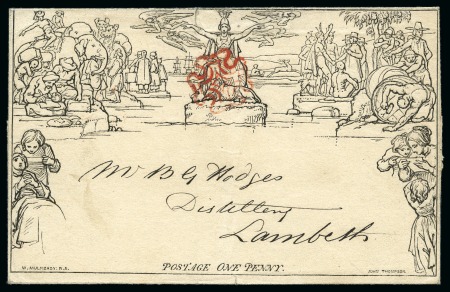 Mr B G Hodges
Distillery
Lambeth
POSTAGE ONE PENNY.
W. MULREADY. R.A.
JOHN THOMPSON.